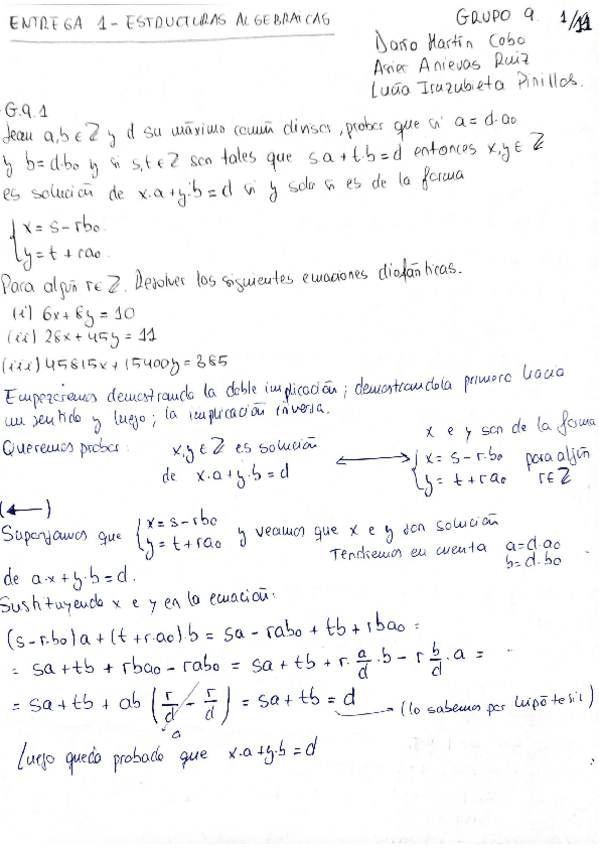 ENTREGA 1 - ESTRUCTURAS ALGEBRAICAS
GRUPO 9. 1/11
Darío Martín Cobo
Anievas Ruiz
Lucía Iruzubieta Pinillos.
G.9.1
Sean a,b ∈ Z y d su máximo común divisor, probar que si a = d·a₀
y b = d·b₀ y si s,t ∈ Z son tales que s.a + t.b = d entonces x,y ∈ Z
es solución de x·a + y·b = d si y solo si es de la forma
{x = s - rb₀
{y = t + ra₀
Para algún r ∈ Z. Resolver las siguientes ecuaciones diofánticas.
(i) 6x + 8y = 10
(ii) 28x + 45y = 11
(iii) 45815x + 15400y = 385
Empezaremos demostrando la doble implicación; demostrandola primero hacia
un sentido y luego; la implicación inversa.
Queremos probar: x,y ∈ Z es solución de x·a + y·b = d ⟷ x e y son de la forma
{x = s - r·b₀
{y = t + ra₀
para algún r ∈ Z
(←)
Supongamos que {x = s - rb₀
{y = t + ra₀ y veamos que x e y son solución
Tendremos en cuenta a = d·a₀
b = d·b₀
de a·x + y·b = d.
Sustituyendo x e y en la ecuación:
(s - r·b₀)a + (t + r·a₀)·b = sa - rab₀ + tb + rba₀ =
= sa + tb + rba₀ - rab₀ = sa + tb + r·a/d·b - r b/d·a =
= sa + tb + ab (r/d - r/d) = sa + tb = d → (lo sabemos por hipótesis)
Luego queda probado que x·a + y·b = d